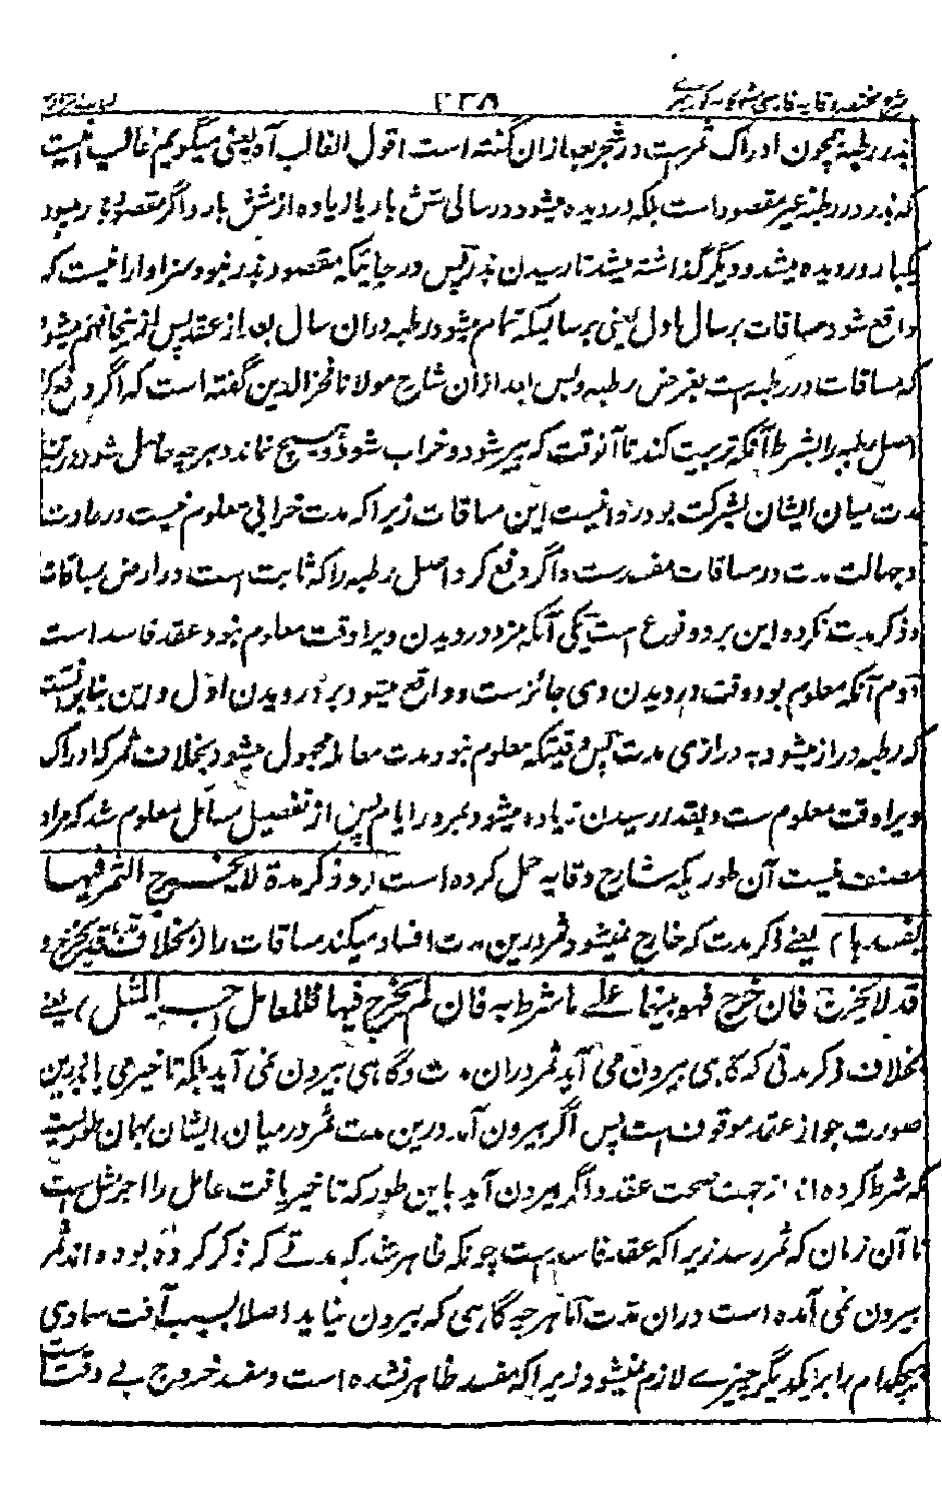 شرح مختصر وقایه فارسی
۲۳۸
بذر رطبه همچون ادراک ثمرست در شجر بعد ازان گفته است اقول الغالب آه یعنی میگویم غالب نیست
که بذر در رطبه غیر مقصود است بلکه درویده میشود در سالی شش بار یا زیاده از شش بار و اگر مقصود بذر میبود
یکبار درویده میشد و دیگر گذاشته میشد تا رسیدن بذر پس در جائیکه مقصود بذر نبود سزاوار نیست که
واقع شود مساقات بر سال اول یعنی بر سالیکه تمام میشود رطبه دران سال بعد از عقد پس ازینجا فهم میشود
که مساقات در رطبه است بغرض رطبه و بس بعد ازان شارح مولانا فخر الدین گفته است که اگر دفع کرد
اصل رطبه را بشرط آنکه تربیت کند تا آنوقت که پیر شود و خراب شود و هیچ نماند و هرچه حاصل شود درین
مدت میان ایشان بشرکت بود روا نیست این مساقات زیرا که مدت خرابی معلوم نیست در عادت
و جهالت مدت در مساقات مفسد ست و اگر دفع کرد اصل رطبه را که ثابت است در ارض بمساقات
و ذکر مدت نکرده این بر دو نوع است یکی آنکه مزد درویدن ویرا وقت معلوم نبود عقد فاسد است
دوم آنکه معلوم بود وقت درویدن وی جائز ست و واقع میشود بر درویدن اول و این بنابر آنست
که رطبه دراز میشود به درازی مدت پس وقتیکه معلوم نبود مدت معامله مجهول میشود بخلاف ثمر که ادراک
ویرا وقت معلوم ست و بقدر رسیدن زیاده میشود بمرور ایام پس از تفصیل مسائل معلوم شد که مراد
مصنف نیست آن طور یکه شارح وقایه حمل کرده است (و ذکر مدة لا یخرج الثمر فیها
یفسدها) یعنے ذکر مدت که خارج نمیشود ثمر درین مدت افساد میکند مساقات را (بخلاف مدة قد یخرج و
قد لا یخرج فان خرج فهو بینهما علے ما شرط به فان لم یخرج فیها فللعامل اجر المثل) یعنے
بخلاف ذکر مدتی که گاهی بیرون می آید ثمر دران مدت و گاهی بیرون نمی آید بلکه تاخیر می یابد درین
صورت جواز عقد موقوف است پس اگر بیرون آمد درین مدت ثمر در میان ایشان بهمان طوریست
که شرط کرده اند از جهت صحت عقد و اگر بیرون آید باین طور که تاخیر یافت عامل را اجر مثل است
تا آن زمان که ثمر رسد زیرا که عقد فاسد است چونکه ظاهر شد که مدتے که ذکر کرده بوده اند ثمر
بیرون نمی آمده است دران مدت اما هر چه گاهی که بیرون نیاید اصلا بسبب آفت سماوی
هیچکدام را بر یکدیگر چیزے لازم نمیشود زیرا که مفسد ظاهر نشده است و مفسد خروج بے وقت است